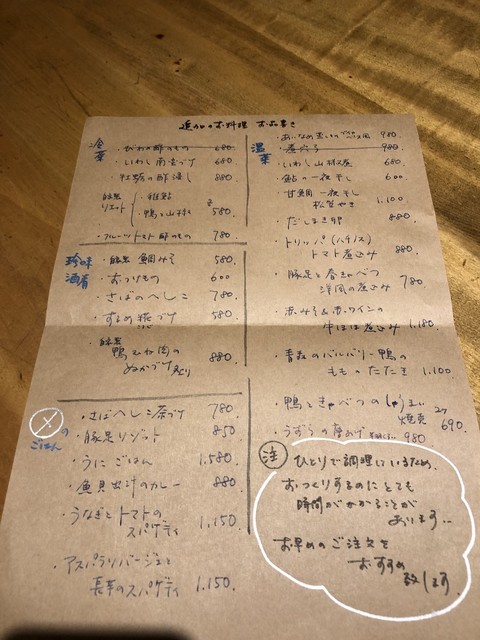 追加のお料理 お品書き
冷菜
・びわの酢のもの 680.
・いわし南蛮づけ 680
・牡蛎の酢浸し 880
自家製リエット ・稚鮎
・鴨と山椒 580.
・フルーツトマト酢のもの 780
珍味 酒肴
・自家製 鯛みそ 580.
・おつけもの 600
・さばのへしこ 780
・するめ糀づけ 580
・自家製
鴨むね肉の
ぬかづけ炙り 880
〆のごはん
・さばへしこ茶づけ 780
・豚足リゾット 850
・うにごはん 1,580
・魚貝出汁のカレー 880
・うなぎとトマトの
スパゲティ 1,150
・アスパラソバージュと
長芋のスパゲティ 1,150.
温菜
980
・煮穴子 980
・いわし山椒煮 680.
・鮎の一夜干し 600
・甘鯛一夜干し
松笠やき 1,100
・だしまき卵 680.
・トリッパ(ハチノス)
トマト煮込み 880
・豚足と春きゃべつ
洋風の煮込み 780
・赤みそ&赤ワインの
牛ほほ煮込み 1,180
・青森のバルバリー鴨の
もものたたき 1,100
・鴨ときゃべつのしゅうまい
2ケ
690
・うずらの唐あげ 980
注
ひとりで調理しているため、
おつくりするのにとても
時間がかかることが
あります…
お早めのご注文を
おすすめ
致します